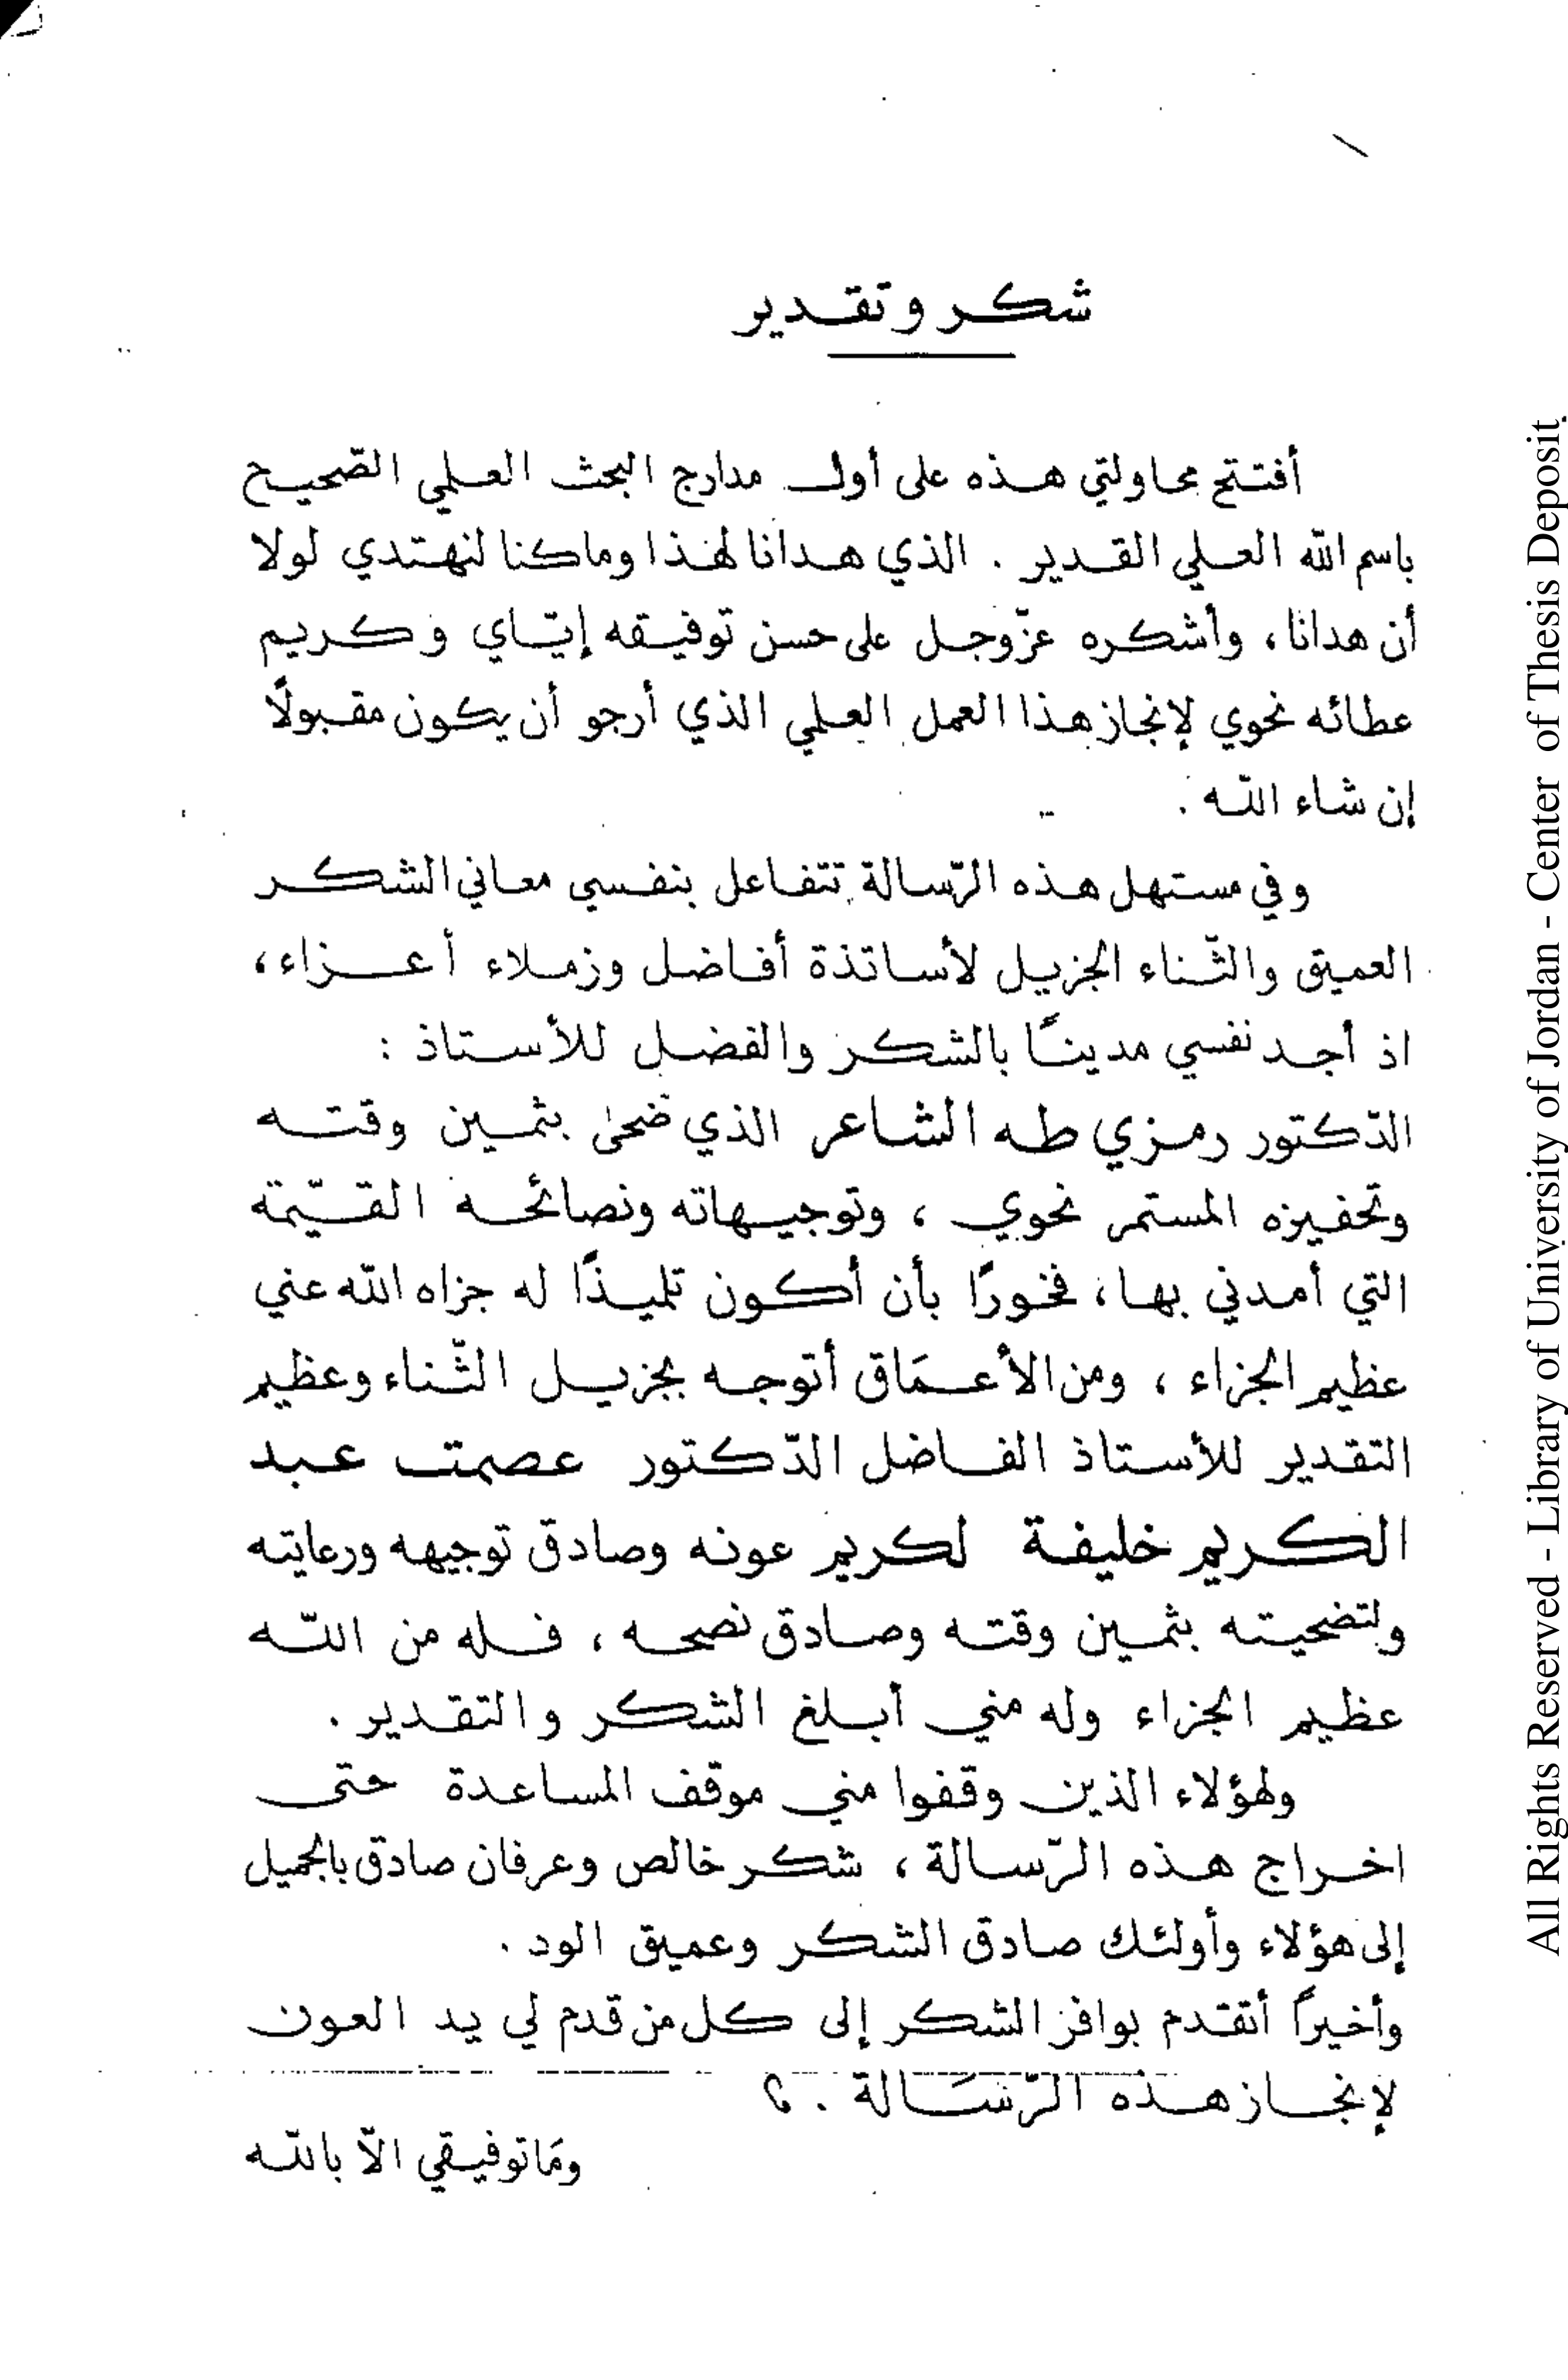 شكر وتقدير
أفتتح محاولتي هذه على أول مدارج البحث العلمي الصّحيح
باسم الله العلي القدير . الذي هدانا لهذا وما كنا لنهتدي لولا
أن هدانا ، وأشكره عزّ وجل على حسن توفيقه إيّاي وكريم
عطائه نحوي لإنجاز هذا العمل العلمي الذي أرجو أن يكون مقبولًا
إن شاء اللّه .
وفي مستهل هذه الرّسالة تتفاعل بنفسي معاني الشكر
العميق والثّناء الجزيل لأساتذة أفاضل وزملاء أعزاء ،
اذ أجد نفسي مدينًا بالشكر والفضل للأستاذ :
الدّكتور رمزي طه الشاعر الذي ضحى بثمين وقته
وتحفيزه المستمر نحوي ، وتوجيهاته ونصائحه القيّمة
التي أمدني بها ، فخورًا بأن أكون تلميذًا له جزاه اللّه عني
عظيم الجزاء ، ومن الأعمَاق أتوجه بجزيل الثّناء وعظيم
التقدير للأستاذ الفاضل الدّكتور عصمت عبد
الكريم خليفة لكريم عونه وصادق توجيهه ورعايته
ولتضحيته بثمين وقته وصادق نصحه ، فله من اللّه
عظيم الجزاء وله مني أبلغ الشكر والتقدير .
ولهؤلاء الذين وقفوا مني موقف المساعدة حتى
اخراج هذه الرّسالة ، شكر خالص وعرفان صادق بالجميل
إلى هؤلاء وأولئك صادق الشكر وعميق الود .
وأخيرًا أتقدم بوافر الشكر إلى كل من قدم لي يد العون
لإنجاز هذه الرّسَالة .
ومَا توفيقي الّا باللّه
All Rights Reserved - Library of University of Jordan - Center of Thesis Deposit